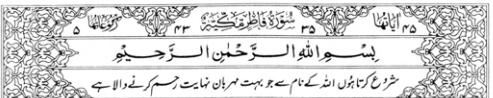 اٰیَاتُهَا ۴۵ ۳۵ سُوْرَةُ فَاطِرٍ مَّكِّیَّةٌ ۴۳ رُكُوْعَاتُهَا ۵
بِسْمِ اللهِ الرَّحْمٰنِ الرَّحِیْمِ
شروع کرتا ہوں اللہ کے نام سے جو بہت مہربان نہایت رحم کرنے والا ہے